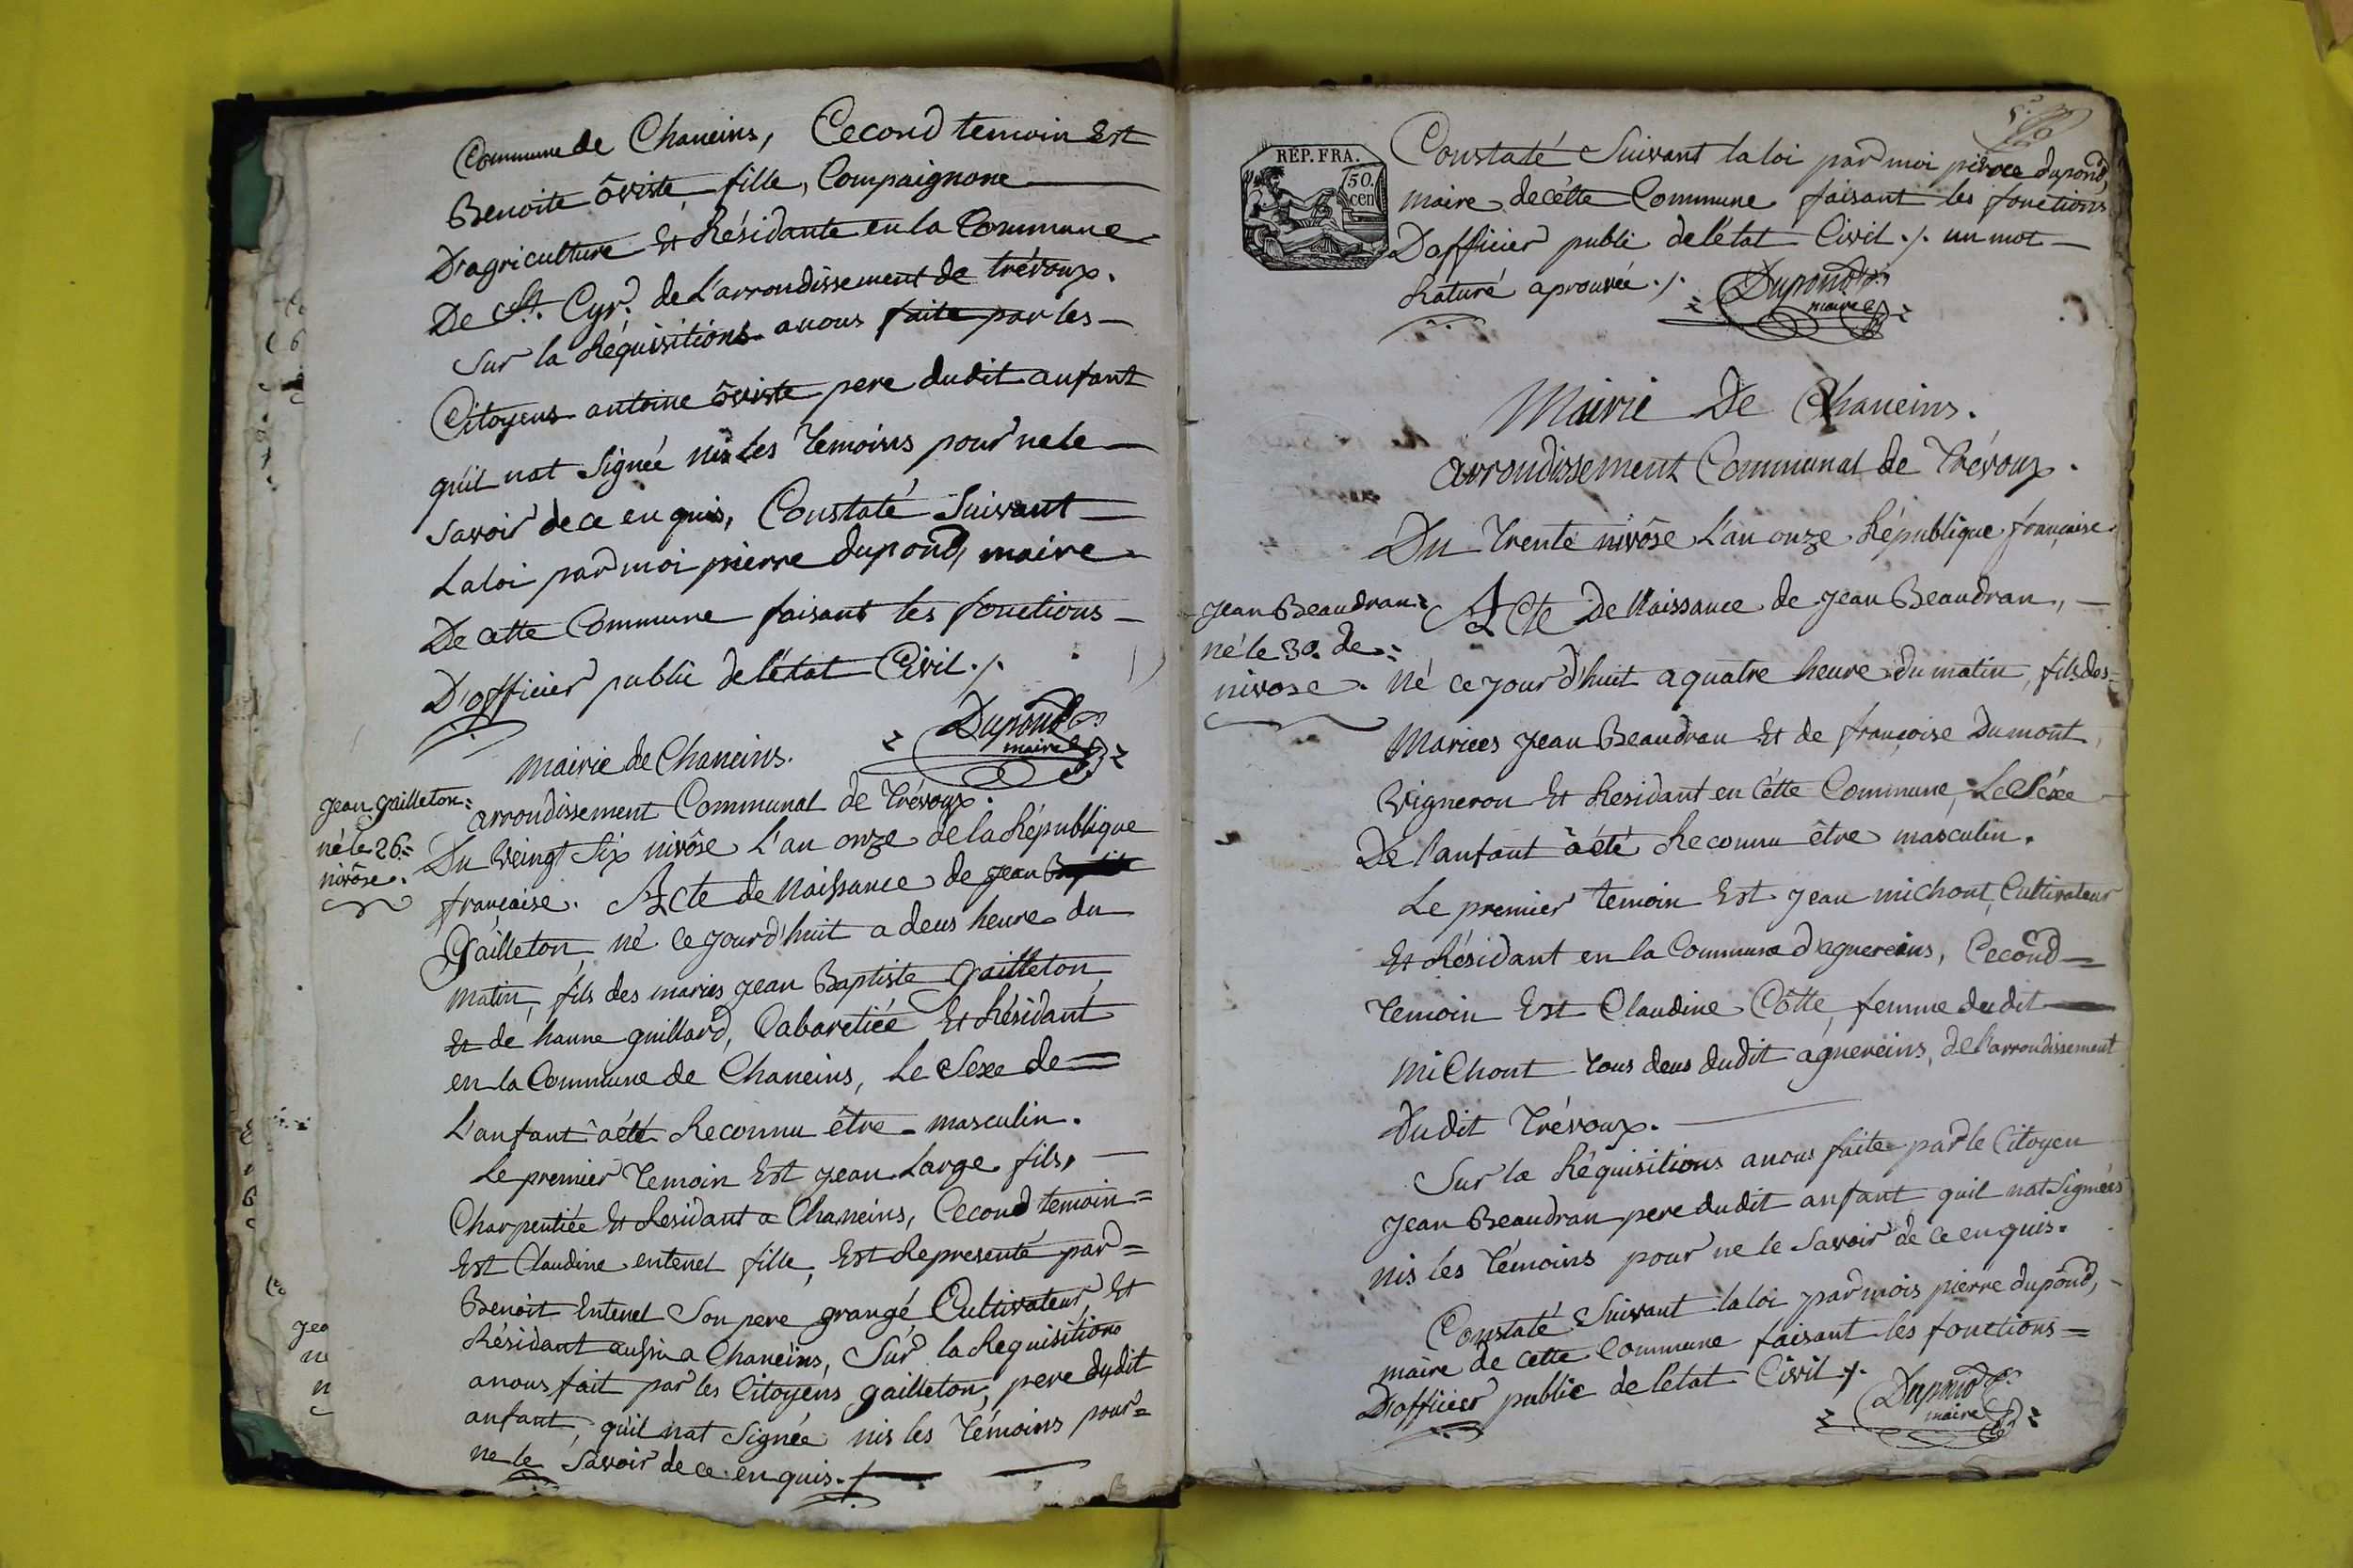 Commune de Chaneins, Cecond temoin Est
Benoite ôviste fille, Compaignone
D'agriculture Et Résidante en la Commune
De St. Cyr. de L'arrondissement de trévoux.
Sur la Réquisitions anous faite par les
Citoyens antoine ôviste pere dudit anfant
qu'il nat Signée nis les temoins pour ne le
Savoir de ce en quis, Constaté Suivant
La loi par moi pierre dupond, maire
De cette Commune faisant les fonctions
D'officier public de l'état Civil ./.
Dupond
maire
Mairie de Chaneins.
arrondissement Communal de Trévoux.
Jean gailleton =
né le 26 =
nivôse.
Du Veingt Six nivôse L'an onze de la République
française. Acte de Naissance de jean
Gailleton, né ce jourd'huit a deus heure du
matin, fils des maries jean Baptiste Gailleton,
Et de hanne guillard, Cabaretiée Et Résidant
en la Commune de Chaneins, Le Sexe de =
L'anfant à été Reconnu être masculin.
Le premier temoin Est jean Large fils,
Charpentiée Et Residant a Chaneins, Cecond temoin =
Est Claudine entenet fille, Est Representé par =
Benoit Entenet Son pere grangé Cultivateur, Et
Résidant aussin a Chaneins, Sur la Requisitions
anous fait par les Citoyens gailleton, pere dudit
anfant, qu'il nat Signée nis les témoins pour =
ne le Savoir de ce en quis ./.
REP. FRA.
50.
cen
Constaté Suivant la loi par moi pierre dupond,
maire de cétte Commune faisant les fonctions
D'officier public de l'état Civil ./. un mot
Raturé aprouvée ./.
Dupond
maire
Mairie De Chaneins.
arrondissement Communal de Trévoux.
Du Trente nivôse L'an onze République française.
Jean Beaudran =
né le 30. de =
nivose.
Acte De Naissance de jean Beaudran,
Né ce jour d'huit a quatre heure du matin, fils des =
Mariees jean Beaudran Et de françoise Dumont,
Vigneron Et Residant en Cétte Commune, Le Séxe
De l'anfant à été Reconnu être masculin.
Le premier temoin Est jean michont, Cultivateur
Et Résidant en la Commune d'aguereins, Cecond =
temoin Est Claudine Côtte, femme dudit
MiChont tous deus dudit aguereins, de l'arrondissement
Dudit Trévoux.
Sur la Réquisitions anous faite par le Citoyen
jean Beaudran pere dudit anfant quil nat Signées
nis les témoins pour ne le Savoir de ce en quis.
Constaté Suivant la loi par mois pierre dupond,
maire de cette Commune faisant les fonctions =
D'officier public de l'état Civil ./.
Dupond
maire